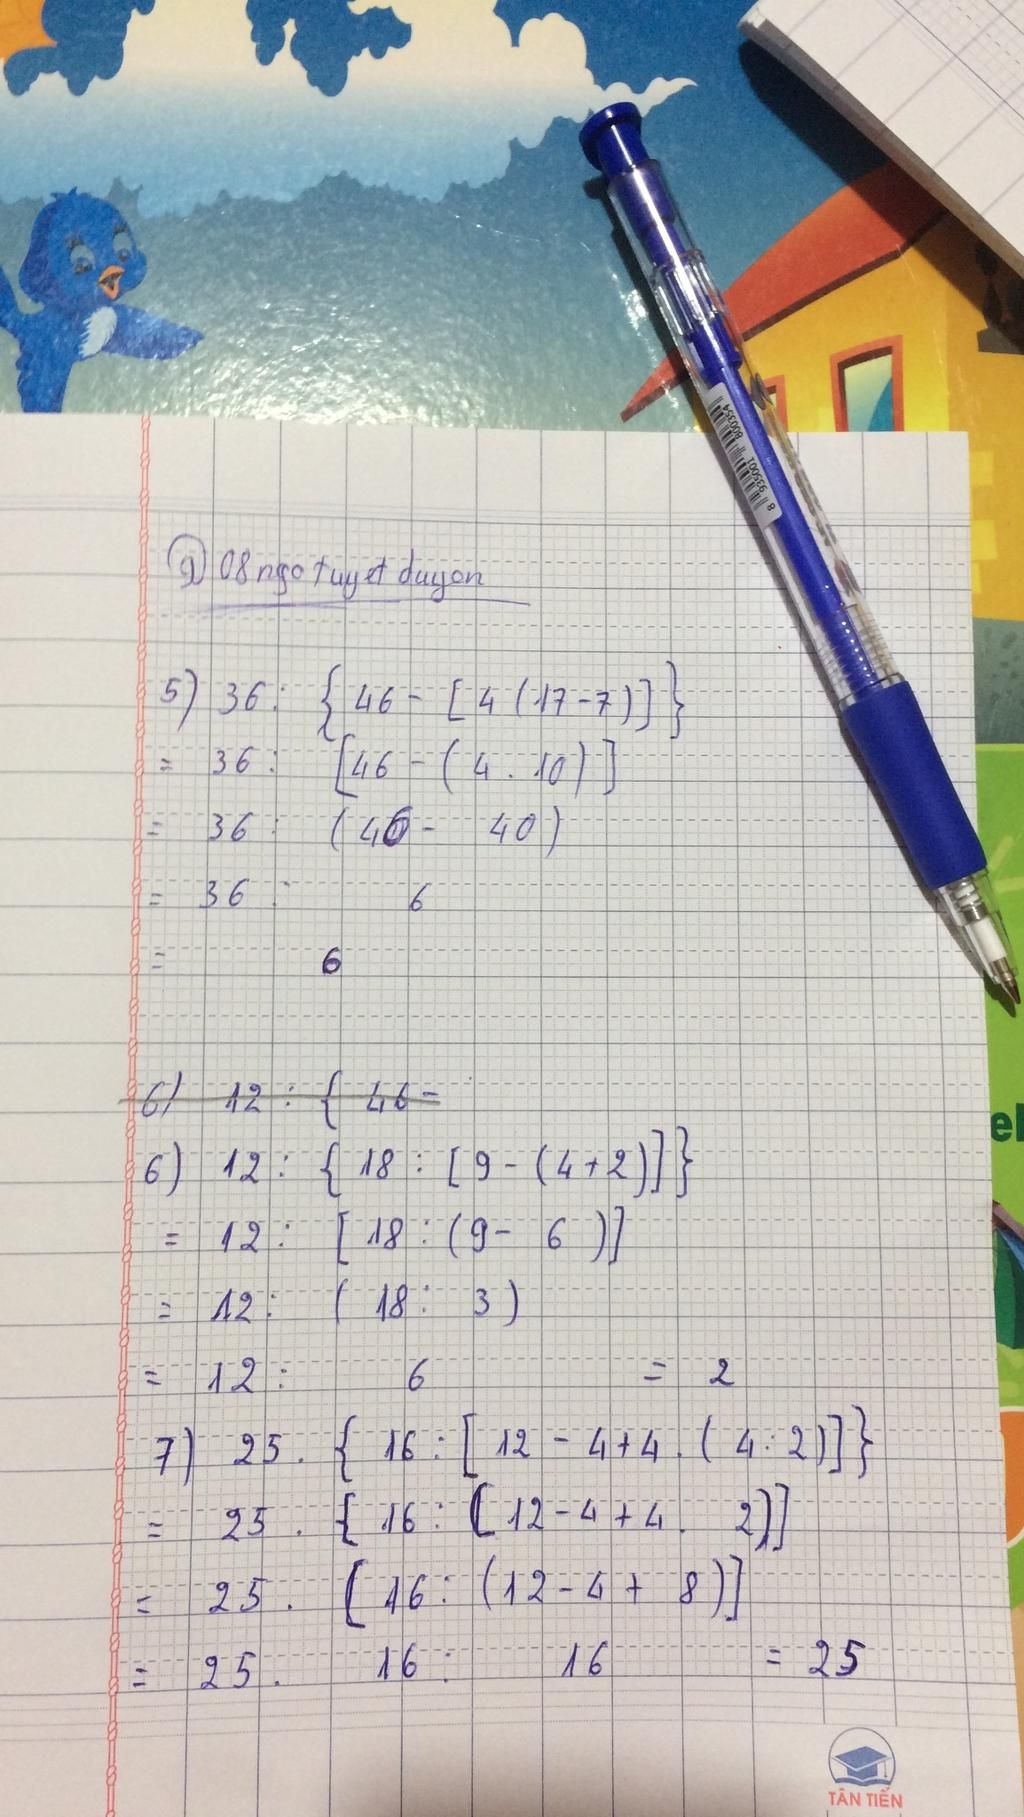 9) 08 ngo tuyet duyon
8 935001 800354
5) 36 : { 46 - [ 4 ( 17 - 7 ) ] }
= 36 : [ 46 - ( 4 . 10 ) ]
= 36 : ( 46 - 40 )
= 36 : 6
= 6
6) 12 : { 46 -
6) 12 : { 18 : [ 9 - ( 4 + 2 ) ] }
= 12 : [ 18 : ( 9 - 6 ) ]
= 12 : ( 18 : 3 )
= 12 : 6 = 2
7) 25 . { 16 : [ 12 - 4 + 4 . ( 4 : 2 ) ] }
= 25 . { 16 : [ 12 - 4 + 4 . 2 ) ]
= 25 . [ 16 : ( 12 - 4 + 8 ) ]
= 25 . 16 : 16 = 25
TÂN TIẾN